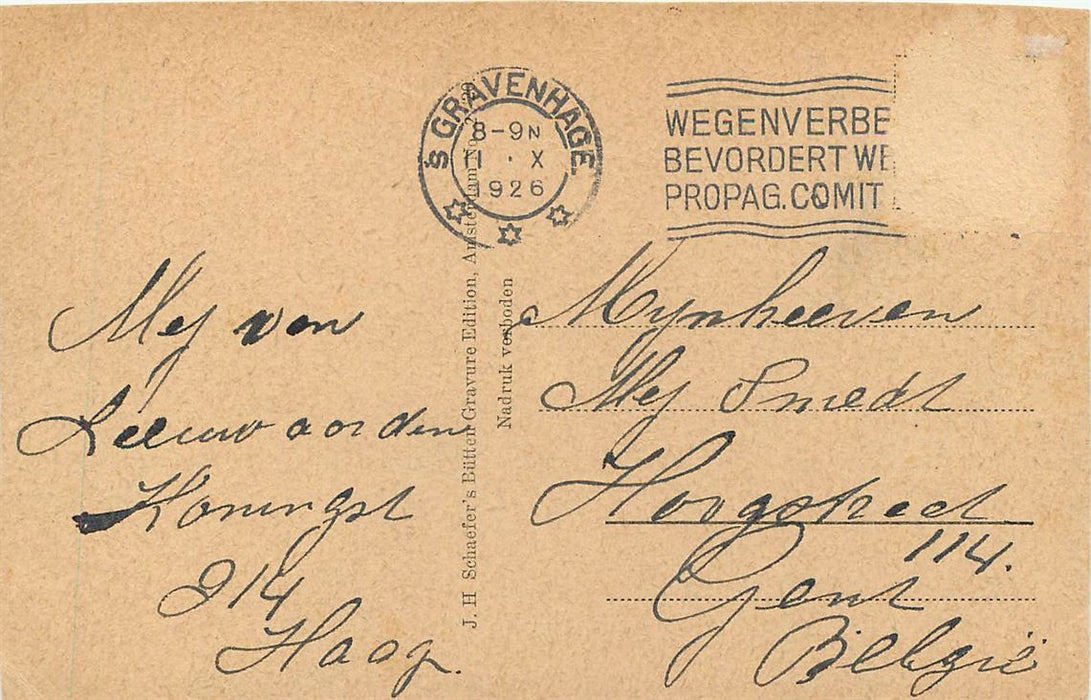 'S GRAVENHAGE
8-9N
11 · X
1926
WEGENVERBE
BEVORDERT WE
PROPAG. COMIT
Mej van
Leeuwaarden
Koningst
214
Haag.
J. H Schaefer's Bütten Gravure Edition, Amsterdam No.
Nadruk verboden
Mynheeven
Mej Smedt
Hoogstreet
114.
Gent
Belgïe